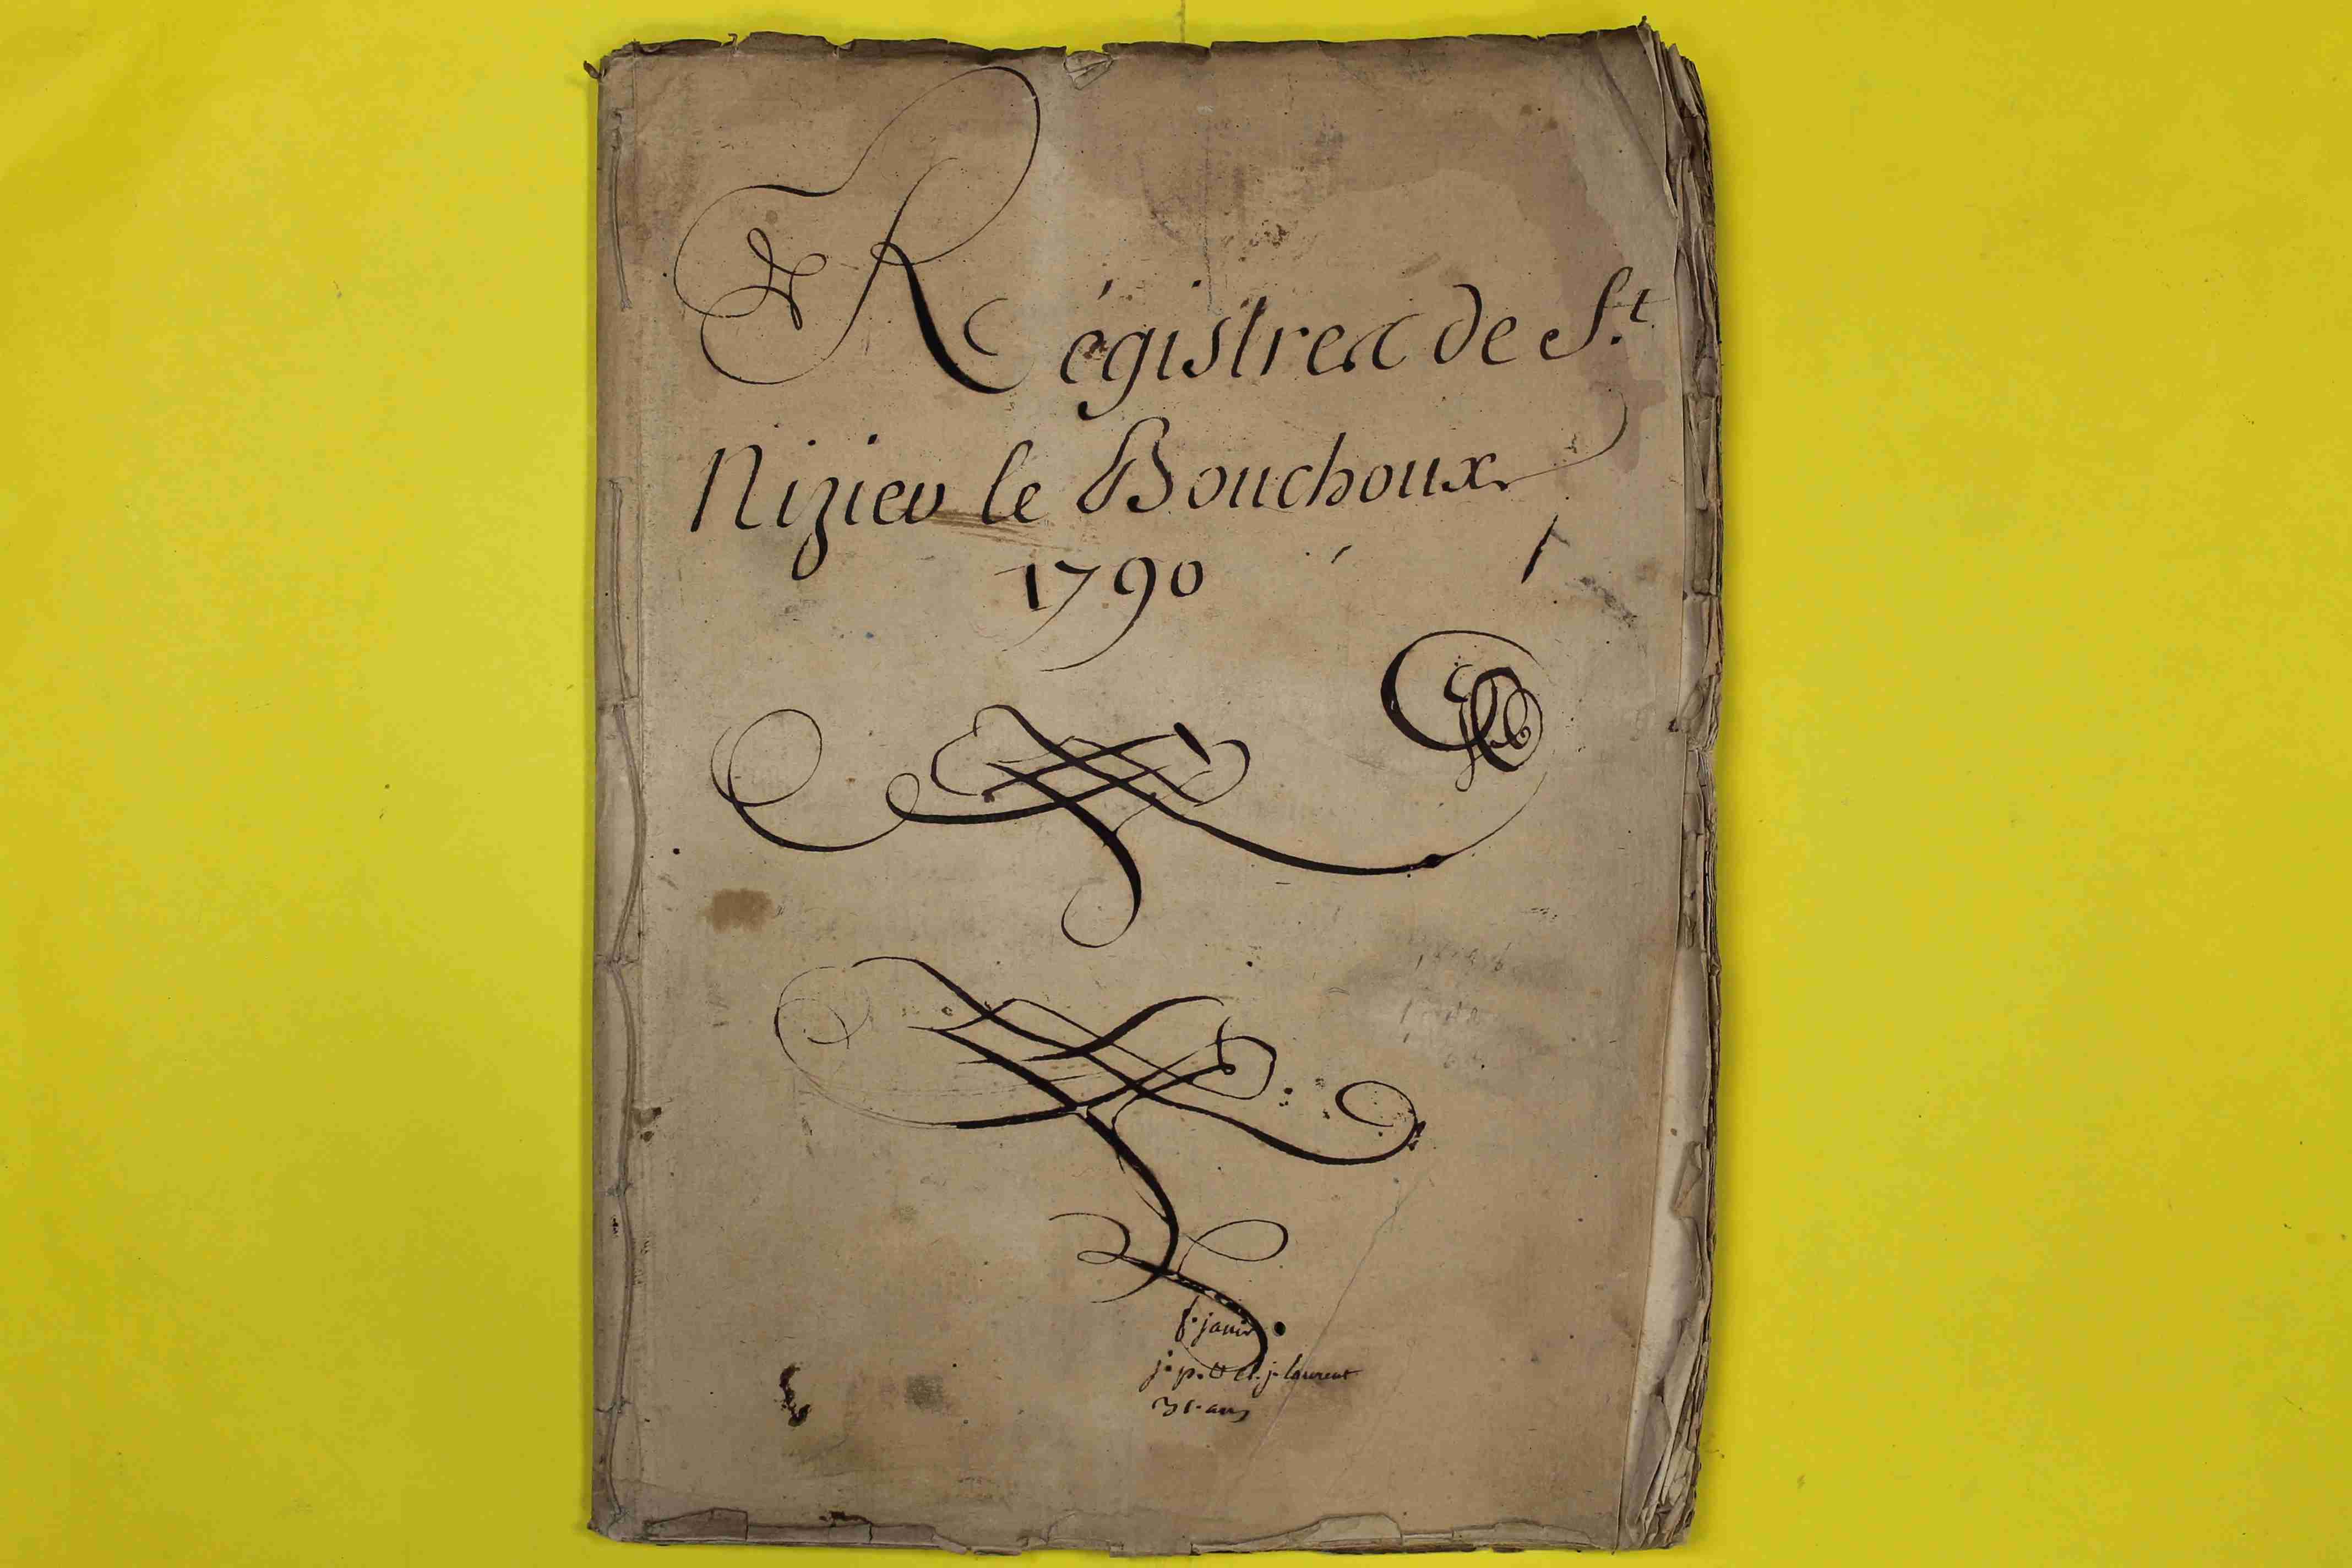 Régistres de St.
Nizier le Bouchoux
1790
j. p. et cl. j. laurent
31. ans